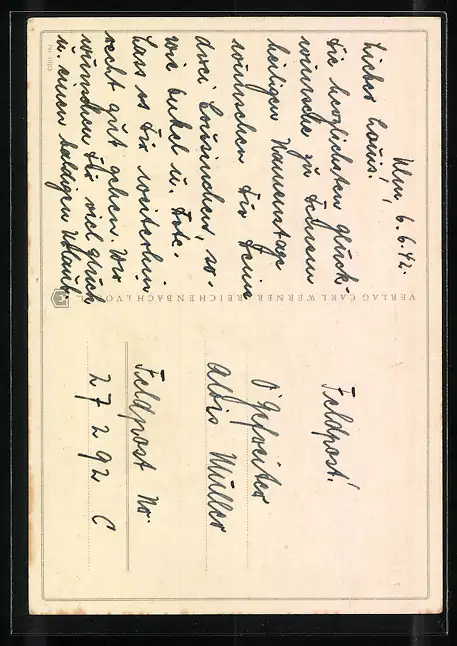 Ulm, 6.6.42.
Lieber Louis!
Die herzlichsten Glück-
wünsche zu Deinem
heutigen Namenstage
wünschen Dir Deine
drei Cousinchen, so-
wie Onkel u. Tote.
Lass es Dir weiterhin
recht gut gehen. Wir
wünschen Dir viel Glück
u. einen baldigen Urlaub
Nr.
VERLAG CARL WERNER, REICHENBACH I. V.
Feldpost!
O'Gefreiter
Alois Müller
Feldpost Nr.
27292 C